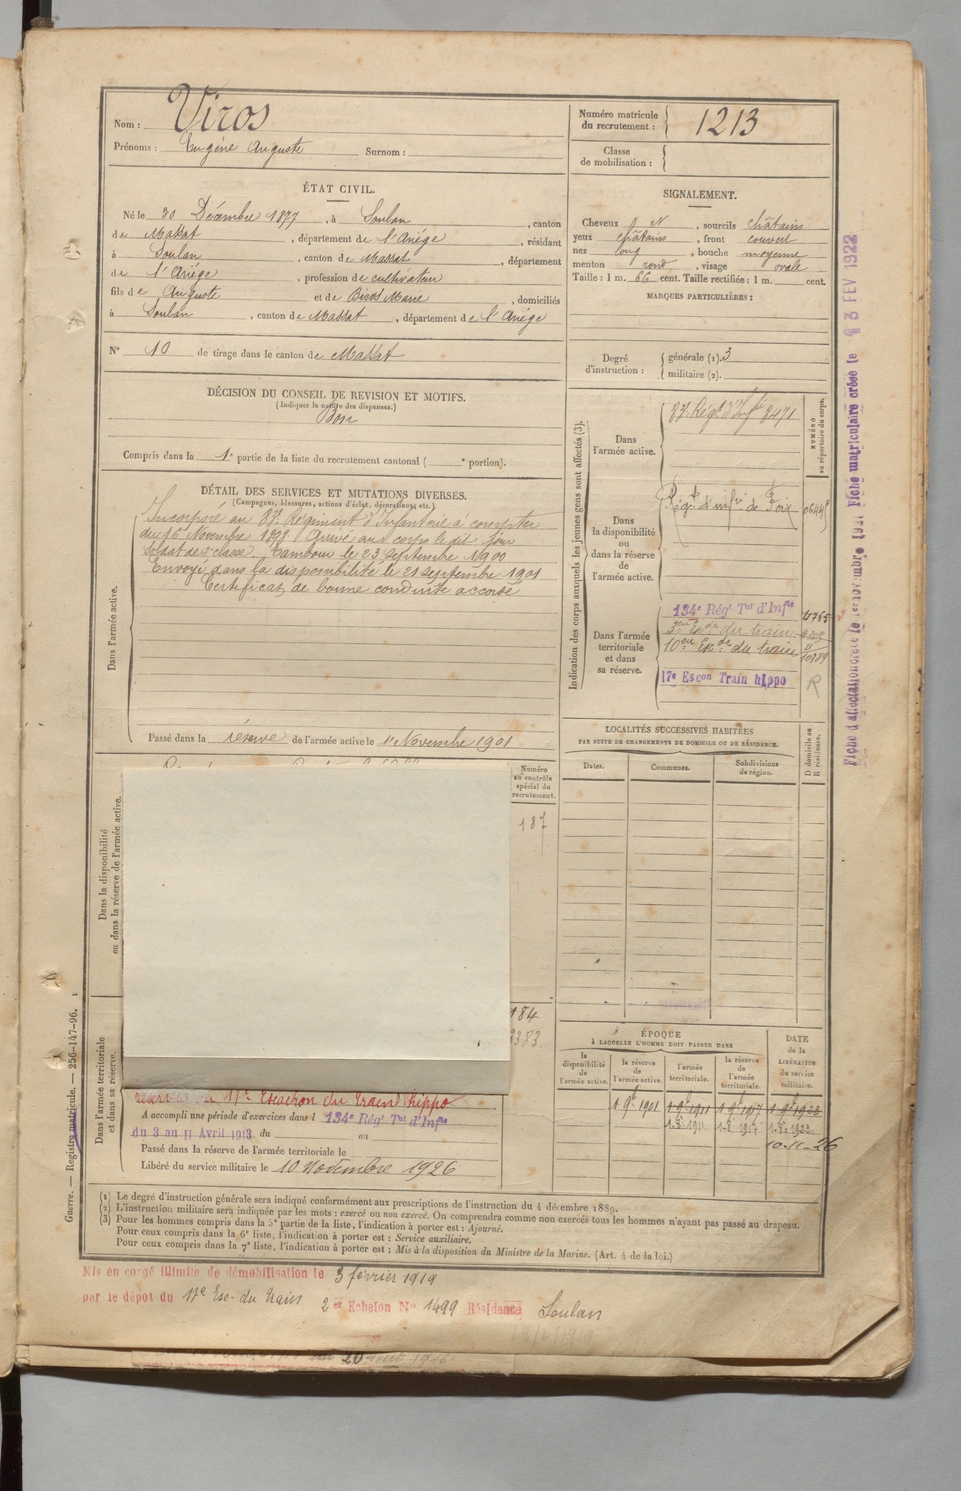 Nom : Viros
Prénoms : Eugène Auguste Surnom :
ÉTAT CIVIL.
Né le 30 Décembre 1877, à Soulan, canton
de Massat, département de l'Ariège, résidant
à Soulan, canton de Massat, département
de l'Ariège, profession de cultivateur
fils de Auguste et de Biros Marie, domiciliés
à Soulan, canton de Massat, département de l'Ariège
N° 10 de tirage dans le canton de Massat
DÉCISION DU CONSEIL DE REVISION ET MOTIFS.
(Indiquer la nature des dispenses.)
Bon
Compris dans la 1e partie de la liste du recrutement cantonal ( e portion).
DÉTAIL DES SERVICES ET MUTATIONS DIVERSES.
(Campagnes, blessures, actions d'éclat, décorations, etc.)
Dans l'armée active.
Incorporé au 83e Régiment d'Infanterie à compter
du 16 Novembre 1898. Arrivé au corps le dit jour
soldat de 2e classe. Tambour le 23 septembre 1900
Envoyé dans la disponibilité le 21 septembre 1901
Certificat de bonne conduite accordé
Passé dans la réserve de l'armée active le 1er Novembre 1901
Dans la disponibilité
ou dans la réserve de l'armée active.
Numéro
au contrôle
spécial du
recrutement.
187
184
Dans l'armée territoriale
et dans sa réserve.
17e Escadron du Train hippo
A accompli une période d'exercices dans l 134e Régt Tal d'Infie
du 3 au 11 Avril 1913 du au
Passé dans la réserve de l'armée territoriale le
Libéré du service militaire le 10 Novembre 1926
Numéro matricule
du recrutement : 1213
Classe
de mobilisation :
SIGNALEMENT.
Cheveux N, sourcils châtains
yeux châtains, front couvert
nez long, bouche moyenne
menton rond, visage ovale
Taille : 1 m. 66 cent. Taille rectifiée : 1 m. cent.
MARQUES PARTICULIÈRES :
Degré
d'instruction :
générale (1). 3
militaire (2).
Indication des corps auxquels les jeunes gens sont affectés (3).
NUMÉRO
au répertoire du corps.
Dans
l'armée active.
83e Régt d'Infie 8471
Dans
la disponibilité
ou
dans la réserve
de
l'armée active.
Régt d'infie de Foix
Dans l'armée
territoriale
et dans
sa réserve.
134e Régt Tal d'Infie
du train
10eme Esc du train 10889
17e Escon Train hippo
R
LOCALITÉS SUCCESSIVES HABITÉES
PAR SUITE DE CHANGEMENTS DE DOMICILE OU DE RÉSIDENCE.
Dates.
Communes.
Subdivisions
de région.
D domicile ou
R résidence.
ÉPOQUE
À LAQUELLE L'HOMME DOIT PASSER DANS
la
disponibilité
de
l'armée active.
la réserve
de
l'armée active.
l'armée
territoriale.
la réserve
de
l'armée
territoriale.
DATE
de la
LIBÉRATION
du service
militaire.
10-11-26
Fiche matriculaire créée le 3 FEV 1922
Guerre. — Registre matricule. — 256-147-96.
(1) Le degré d'instruction générale sera indiqué conformément aux prescriptions de l'instruction du 4 décembre 1889.
(2) L'instruction militaire sera indiquée par les mots : exercé ou non exercé. On comprendra comme non exercés tous les hommes n'ayant pas passé au drapeau.
(3) Pour les hommes compris dans la 5e partie de la liste, l'indication à porter est : Ajourné.
Pour ceux compris dans la 6e liste, l'indication à porter est : Service auxiliaire.
Pour ceux compris dans la 7e liste, l'indication à porter est : Mis à la disposition du Ministre de la Marine. (Art. 4 de la loi.)
Mis en congé illimité de démobilisation le 3 février 1919
par le dépôt du 17e Esc. du Train 2er Echelon N° 1499 Résidence Soulan